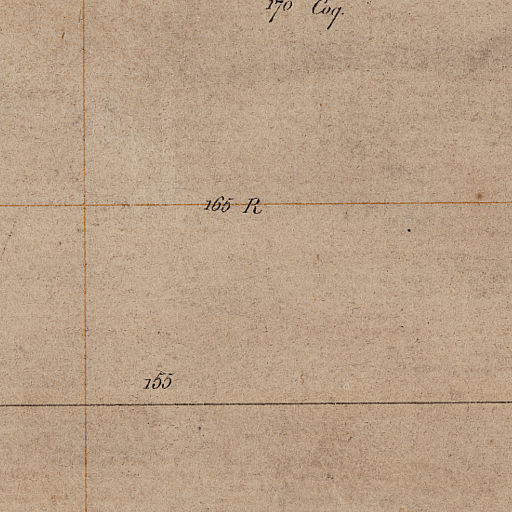 170 Coq.
165 R
155